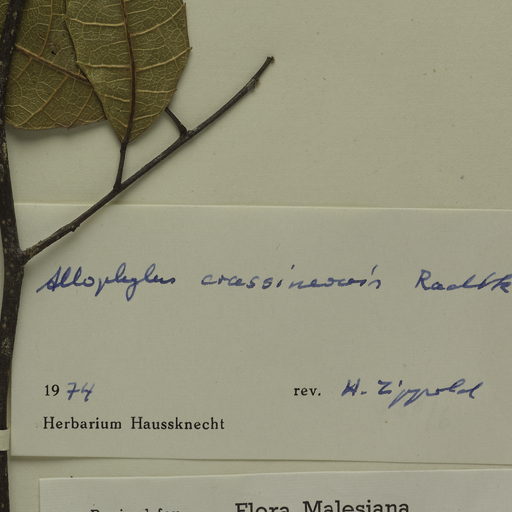 Allophylus crassinervis Radlk
1974 rev. H. Zippold
Herbarium Haussknecht
Flora Malesiana